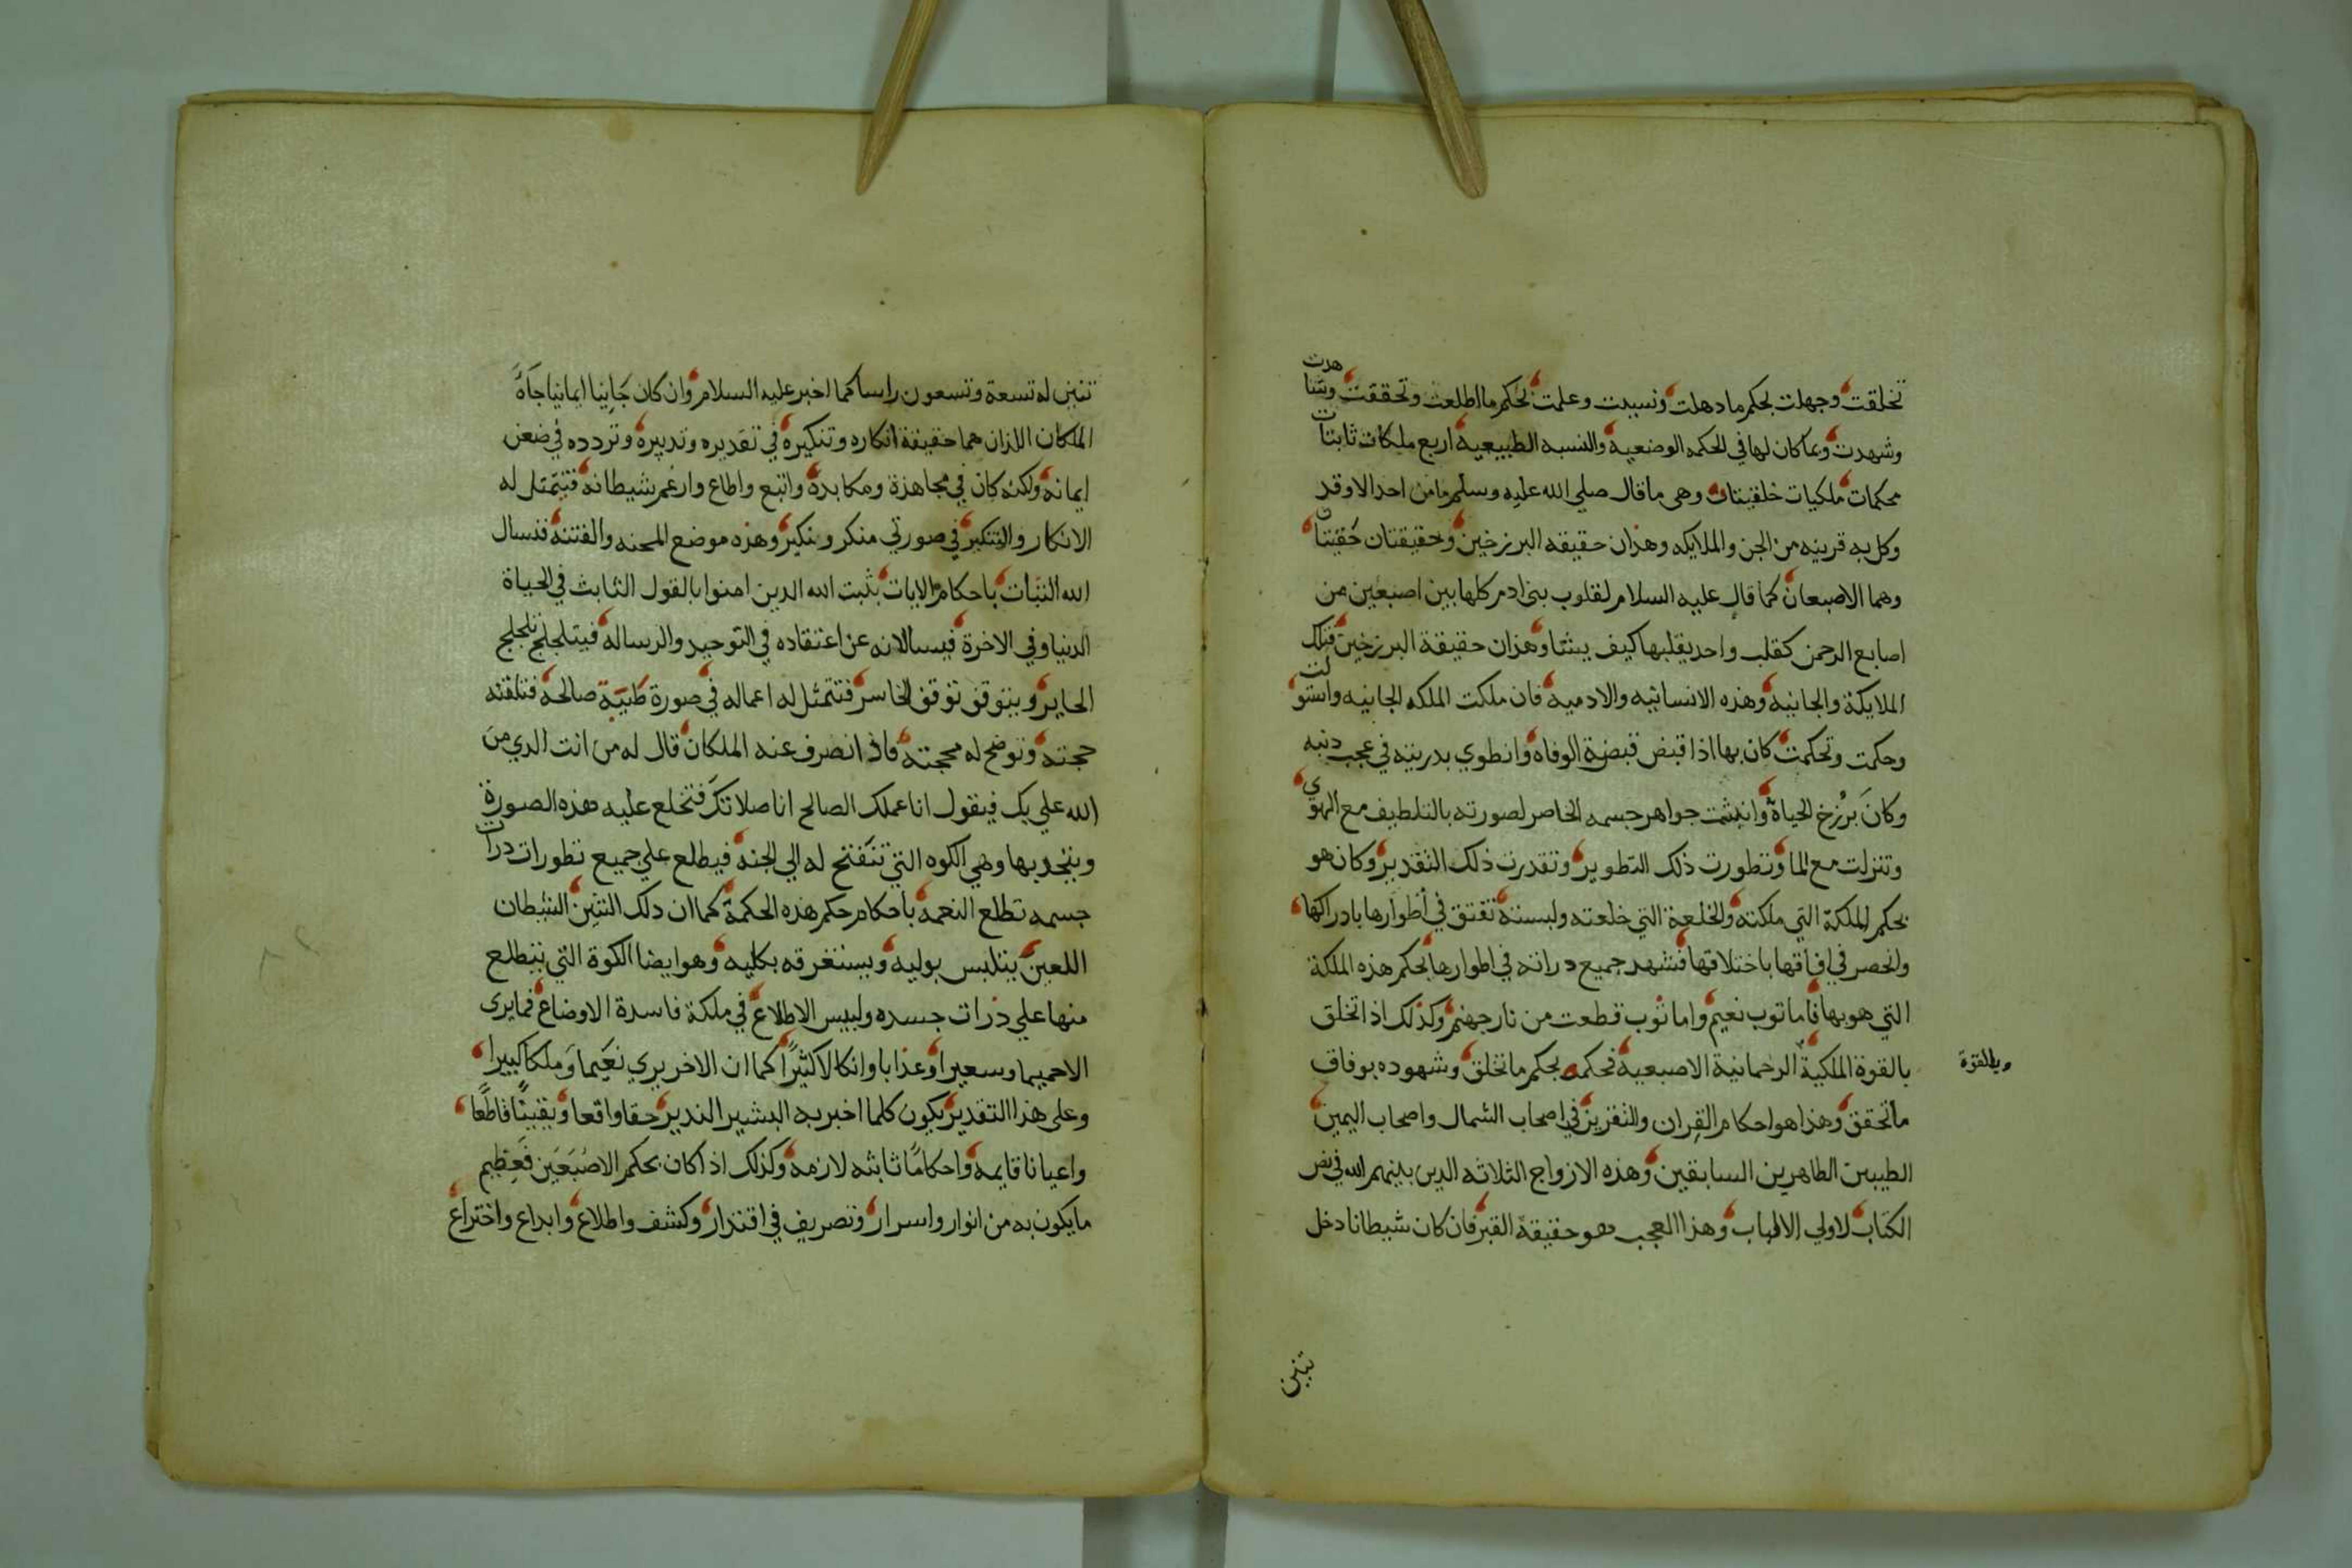 تخلقت وجهلت بحكم ما دهلت ونسيت وعلمت بحكم ما اطلعت وتحققت وشاهدت
وشهدت وبما كان لها في الحكمه الوضعيه والنسبه الطبيعيه اربع ملكات ثابتات
محكمات ملكيات خلقيتان وهى ما قال صلى الله عليه وسلم ما من احد الا وقد
وكل به قرينه من الجن والملايكه وهذان حقيقه البرزخين وحقيقتان حقيتان
وهما الاصبعان كما قال عليه السلام لقلوب بنى ادم كلها بين اصبعين من
اصابع الرحمن كقلب واحد يقلبها كيف يشا وهذان حقيقة البرزخين فتلك
الملايكة والجانيه وهذه الانسانيه والادميه فان ملكت الملكه الجانيه واستولت
وحكمت وتحكمت كان بها اذا قبض قبضة الوفاه وانطوي بدرينه في عجب دنبه
وكان برزخ الحياة وانبثت جواهر جسمه الخاص لصورته بالتلطيف مع الهوى
وتنزلت مع الما وتطورت ذلك التطوير وتقدرت ذلك التقدير وكان هو
بحكم الملكة التي ملكته والخلعة التي خلعته ولبسته تفتق في أطوارها بادراكها
وانحصر في افاقها باختلاقها فشهد جميع دراته في اطوارها بحكم هذه الملكة
التي هو بها فاما توب نعيم واما ثوب قطعت من نار جهنم وكذلك اذا تخلق
بالقوة الملكية الرحمانية الاصبعية فحكمه بحكم ما تخلق وشهوده بوفاق
وبالقوة
ما تحقق وهذا هو احكام القران والتفرين في اصحاب الشمال واصحاب اليمين
الطيبين الطاهرين السابقين وهذه الازواج الثلاثه الدين بينهم الله في نص
الكتاب لاولي الالباب وهذا العجب هو حقيقة القبر فان كان شيطانا دخل
تنين
تنين له تسعة وتسعون راسا كما اخبر عليه السلام وان كان جانيا ايمانيا جاه
الملكان اللذان هما حقيقة انكاره وتنكيره في تقديره وتدبيره وتردده في ضعن
ايمانه ولكنه كان في مجاهدة ومكابدة واتبع واطاع وارغم شيطانه فتتمثل له
الانكار والتنكير في صورتي منكر ونكير وهذه موضع المحنه والفتنه فنسال
الله الثبات باحكام الايات يثبت الله الدين امنوا بالقول الثابت في الحياة
الدنيا وفي الاخرة فيسالانه عن اعتقاده في التوحيد والرساله فيتلجلج تلجلج
الحاير ويتوقف توقف الخاسر فتتمثل له اعماله في صورة طيبة صالحة فتلقنه
حجته وتوضح له محجته فاذا انصرف عنه الملكان قال له من انت الدي من
الله علي بك فيقول انا عملك الصالح انا صلاتك فتخلع عليه هذه الصورة
ويتحد بها وهي الكوه التي تنفتح له الي الجنه فيطلع علي جميع تطورات درات
جسمه تطلع النعمه باحكام حكم هذه الحكمة كما ان دلك التنين الشيطان
اللعين يتلبس بوليه ويستغرقه بكليه وهو ايضا الكوة التي يتطلع
منها علي ذرات جسده وليبس الاطلاع في ملكة فاسدة الاوضاع فما يرى
الا حميما وسعيرا وعذابا وانكالا كثيرا كما ان الاخر يري نعيما وملكا كبيرا
وعلى هذا التقدير يكون كلما اخبر به البشير الندير حقا واقعا ويقينًا قاطعًا
واعيانا قايمه واحكامًا ثابته لازمه وكذلك اذا كان بحكم الاصبعين فعظيم
ما يكون به من انوار واسرار وتصريف في اقتدار وكشف واطلاع وابداع واختراع